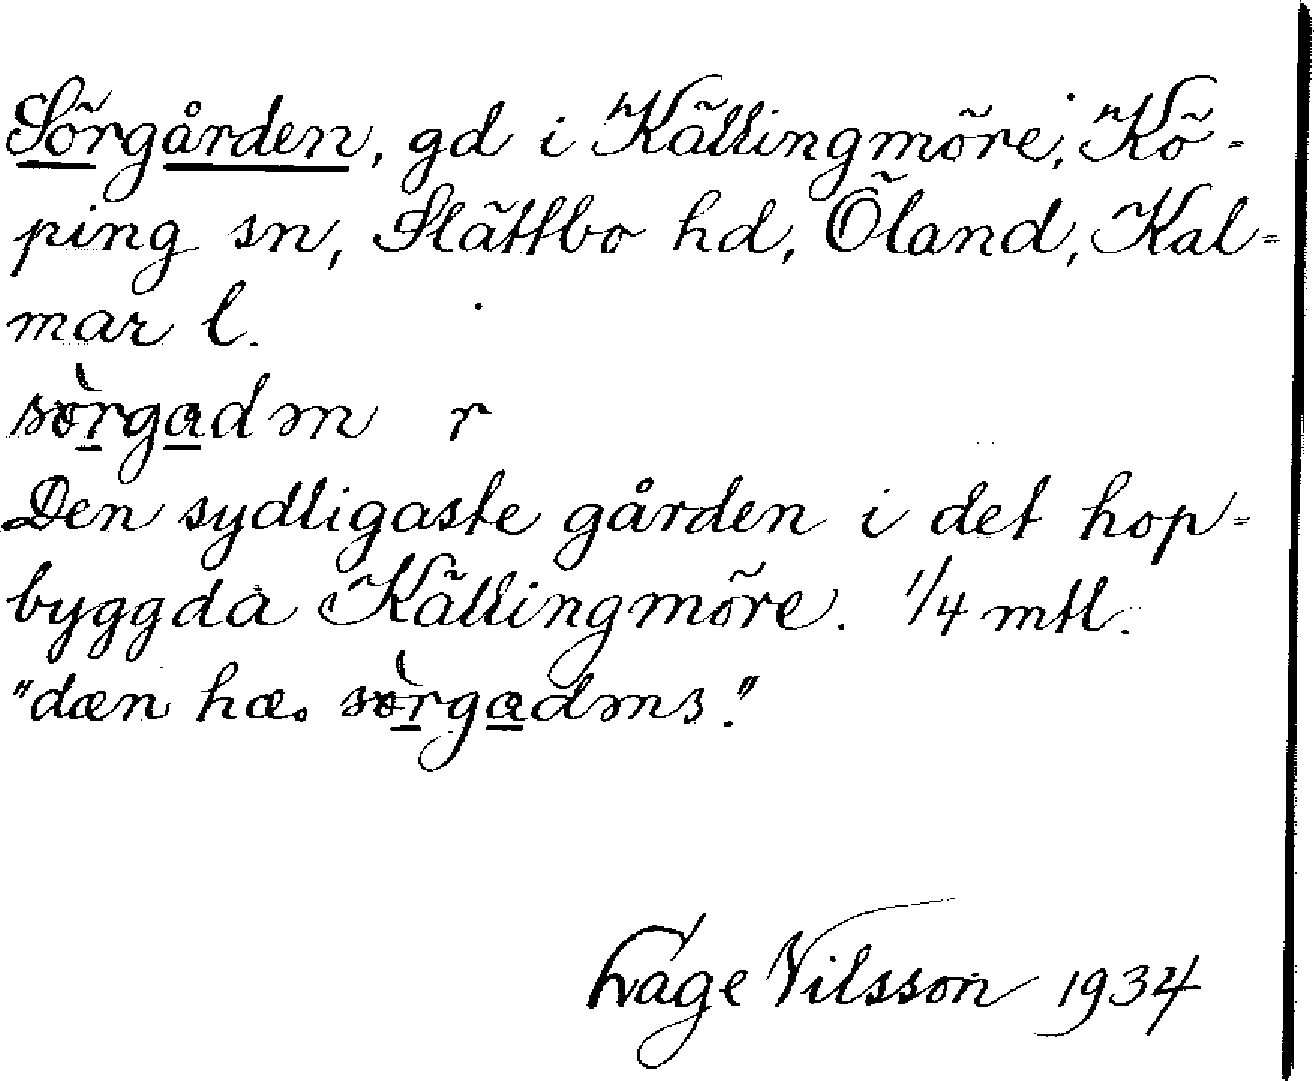 Sörgården, gd i Källingmöre, Kö-
ping sn, Slättbo hd, Öland, Kal-
mar l.
sòrgadm r
Den sydligaste gården i det hop-
byggda Källingmöre. 1/4 mtl.
"dæn hæ. sòrgadms."
Nilsson 1934